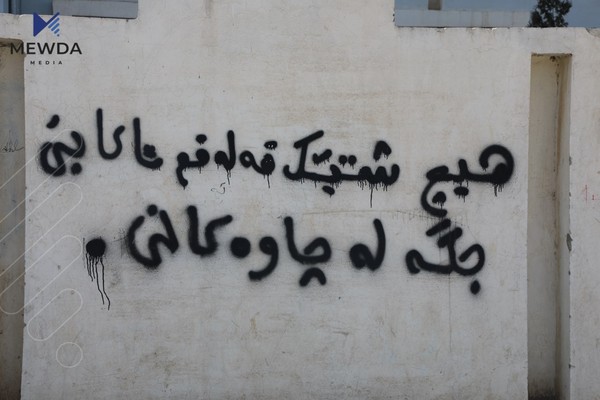 MEWDA
MEDIA
هیچ شتێک قەلەقم ناکا بێ
جگە لە چاوەکانی .